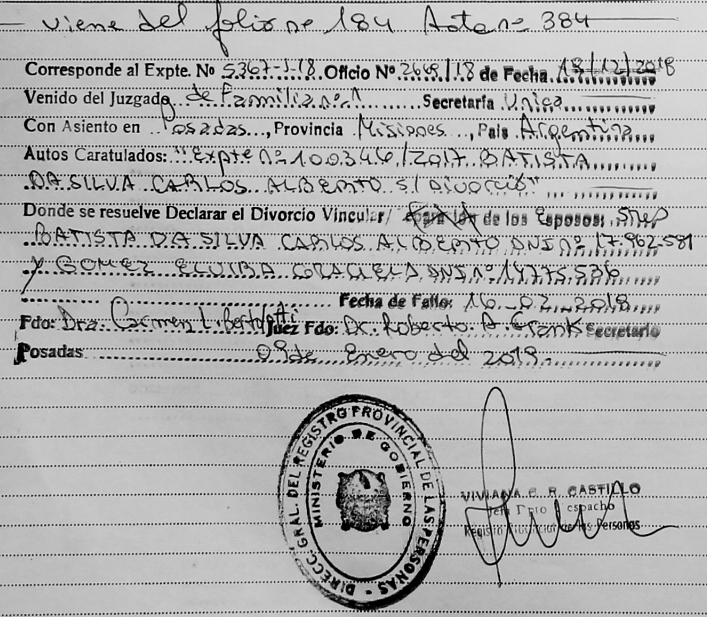 viene del folio nº 184 Acta nº 384
Corresponde al Expte. No 5367-J-18. Oficio Nº 2649/18 de Fecha 18/12/2018
Venido del Juzgado de Familia nº 1 Secretaría Unica
Con Asiento en Posadas, Provincia Misiones, Pais Argentina
Autos Caratulados: "Expte nº 100346/2017 BATISTA
DA SILVA CARLOS ALBERTO S/ Divorcio"
Donde se resuelve Declarar el Divorcio Vincular/ de los Esposos:
BATISTA DA SILVA CARLOS ALBERTO DNI nº 17.962.581
Y GOMEZ ELVIRA GRACIELA DNI nº 14775.536
Fecha de Fallo: 16-02-2018
Fdo: Dra. Carmen L. Juez Fdo: Dr. Roberto A. Secretario
Posadas 09 de Enero del 2019.
DIRECC. GRAL. DEL REGISTRO PROVINCIAL DE LAS PERSONAS
MINISTERIO DE GOBIERNO
VIVIANA C. R. CASTILLO
Registro Provincial de las Personas